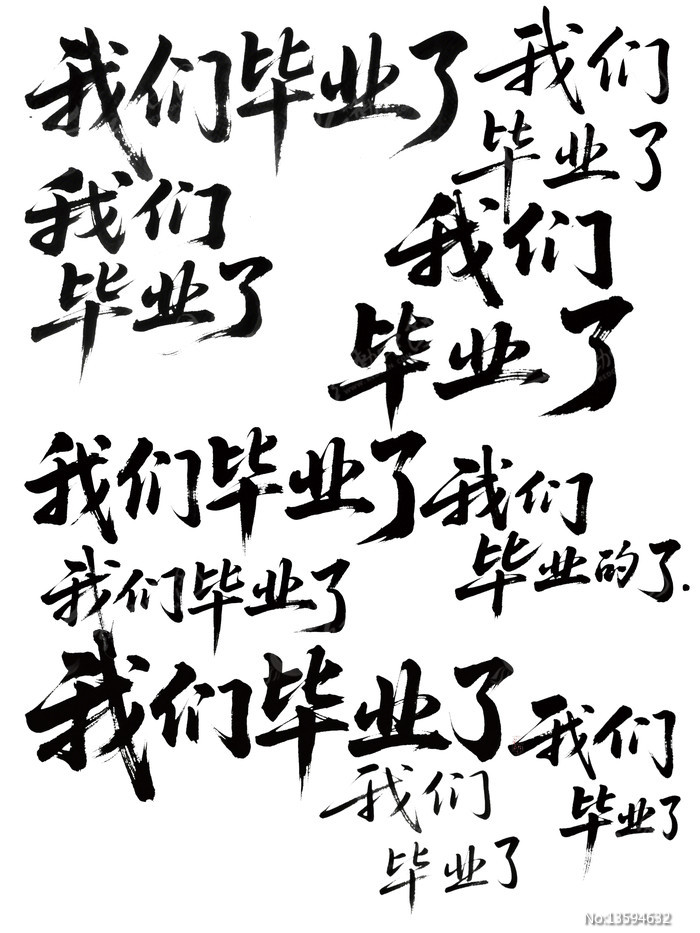 我们毕业了
我们
毕业了
我们
毕业了
我们
毕业了
我们毕业了
我们
毕业的了.
我们毕业了
我们毕业了
我们
毕业了
我们
毕业了
No:13594632